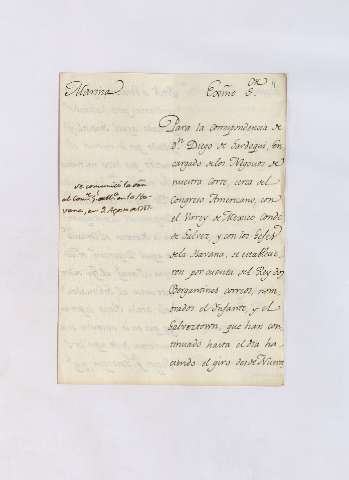 Marina.
Exmo S.or
4
Para la correspondencia de
D.n Diego de Gardoqui, En
cargado de los Negocios de
nuestra Corte, cerca del
Congreso Americano, con
el Virrey de Mexico Conde
de Galvez, y con los Gefes
de la Havana, se establecie
ron por cuenta del Rey dos
Bergantines correos, nom
brados el Infante, y el
Galveztown, que han con
tinuado hasta el dia ha
ciendo el giro desde Nueva
se comunicó la orn
al Com.te
en la Ha
vana, en 2 Agosto